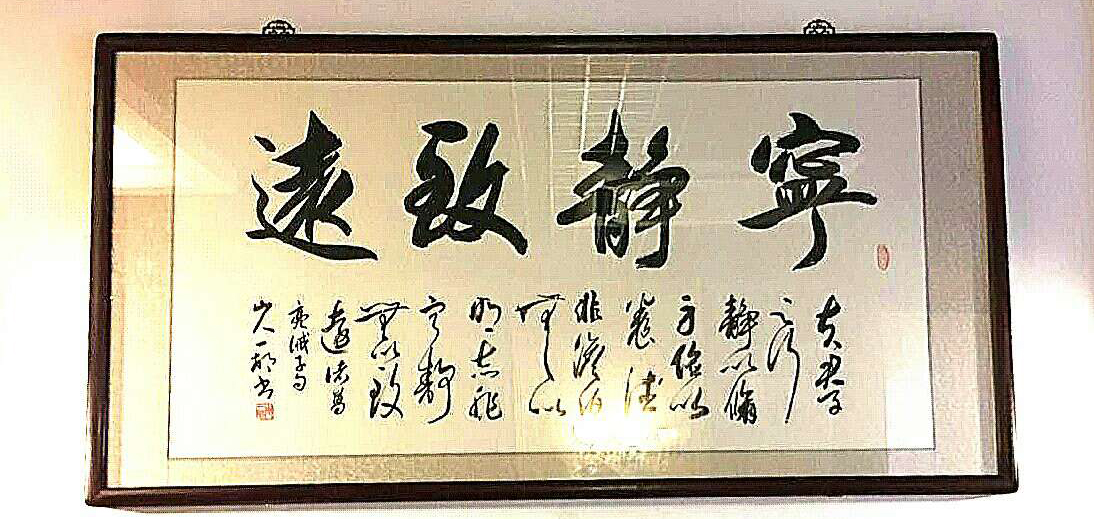 寧靜致遠
夫君子
之行
靜以修
身儉以
養德
非澹泊
無以
明志非
寧靜
無以致
遠諸葛
亮誡子
山人一書